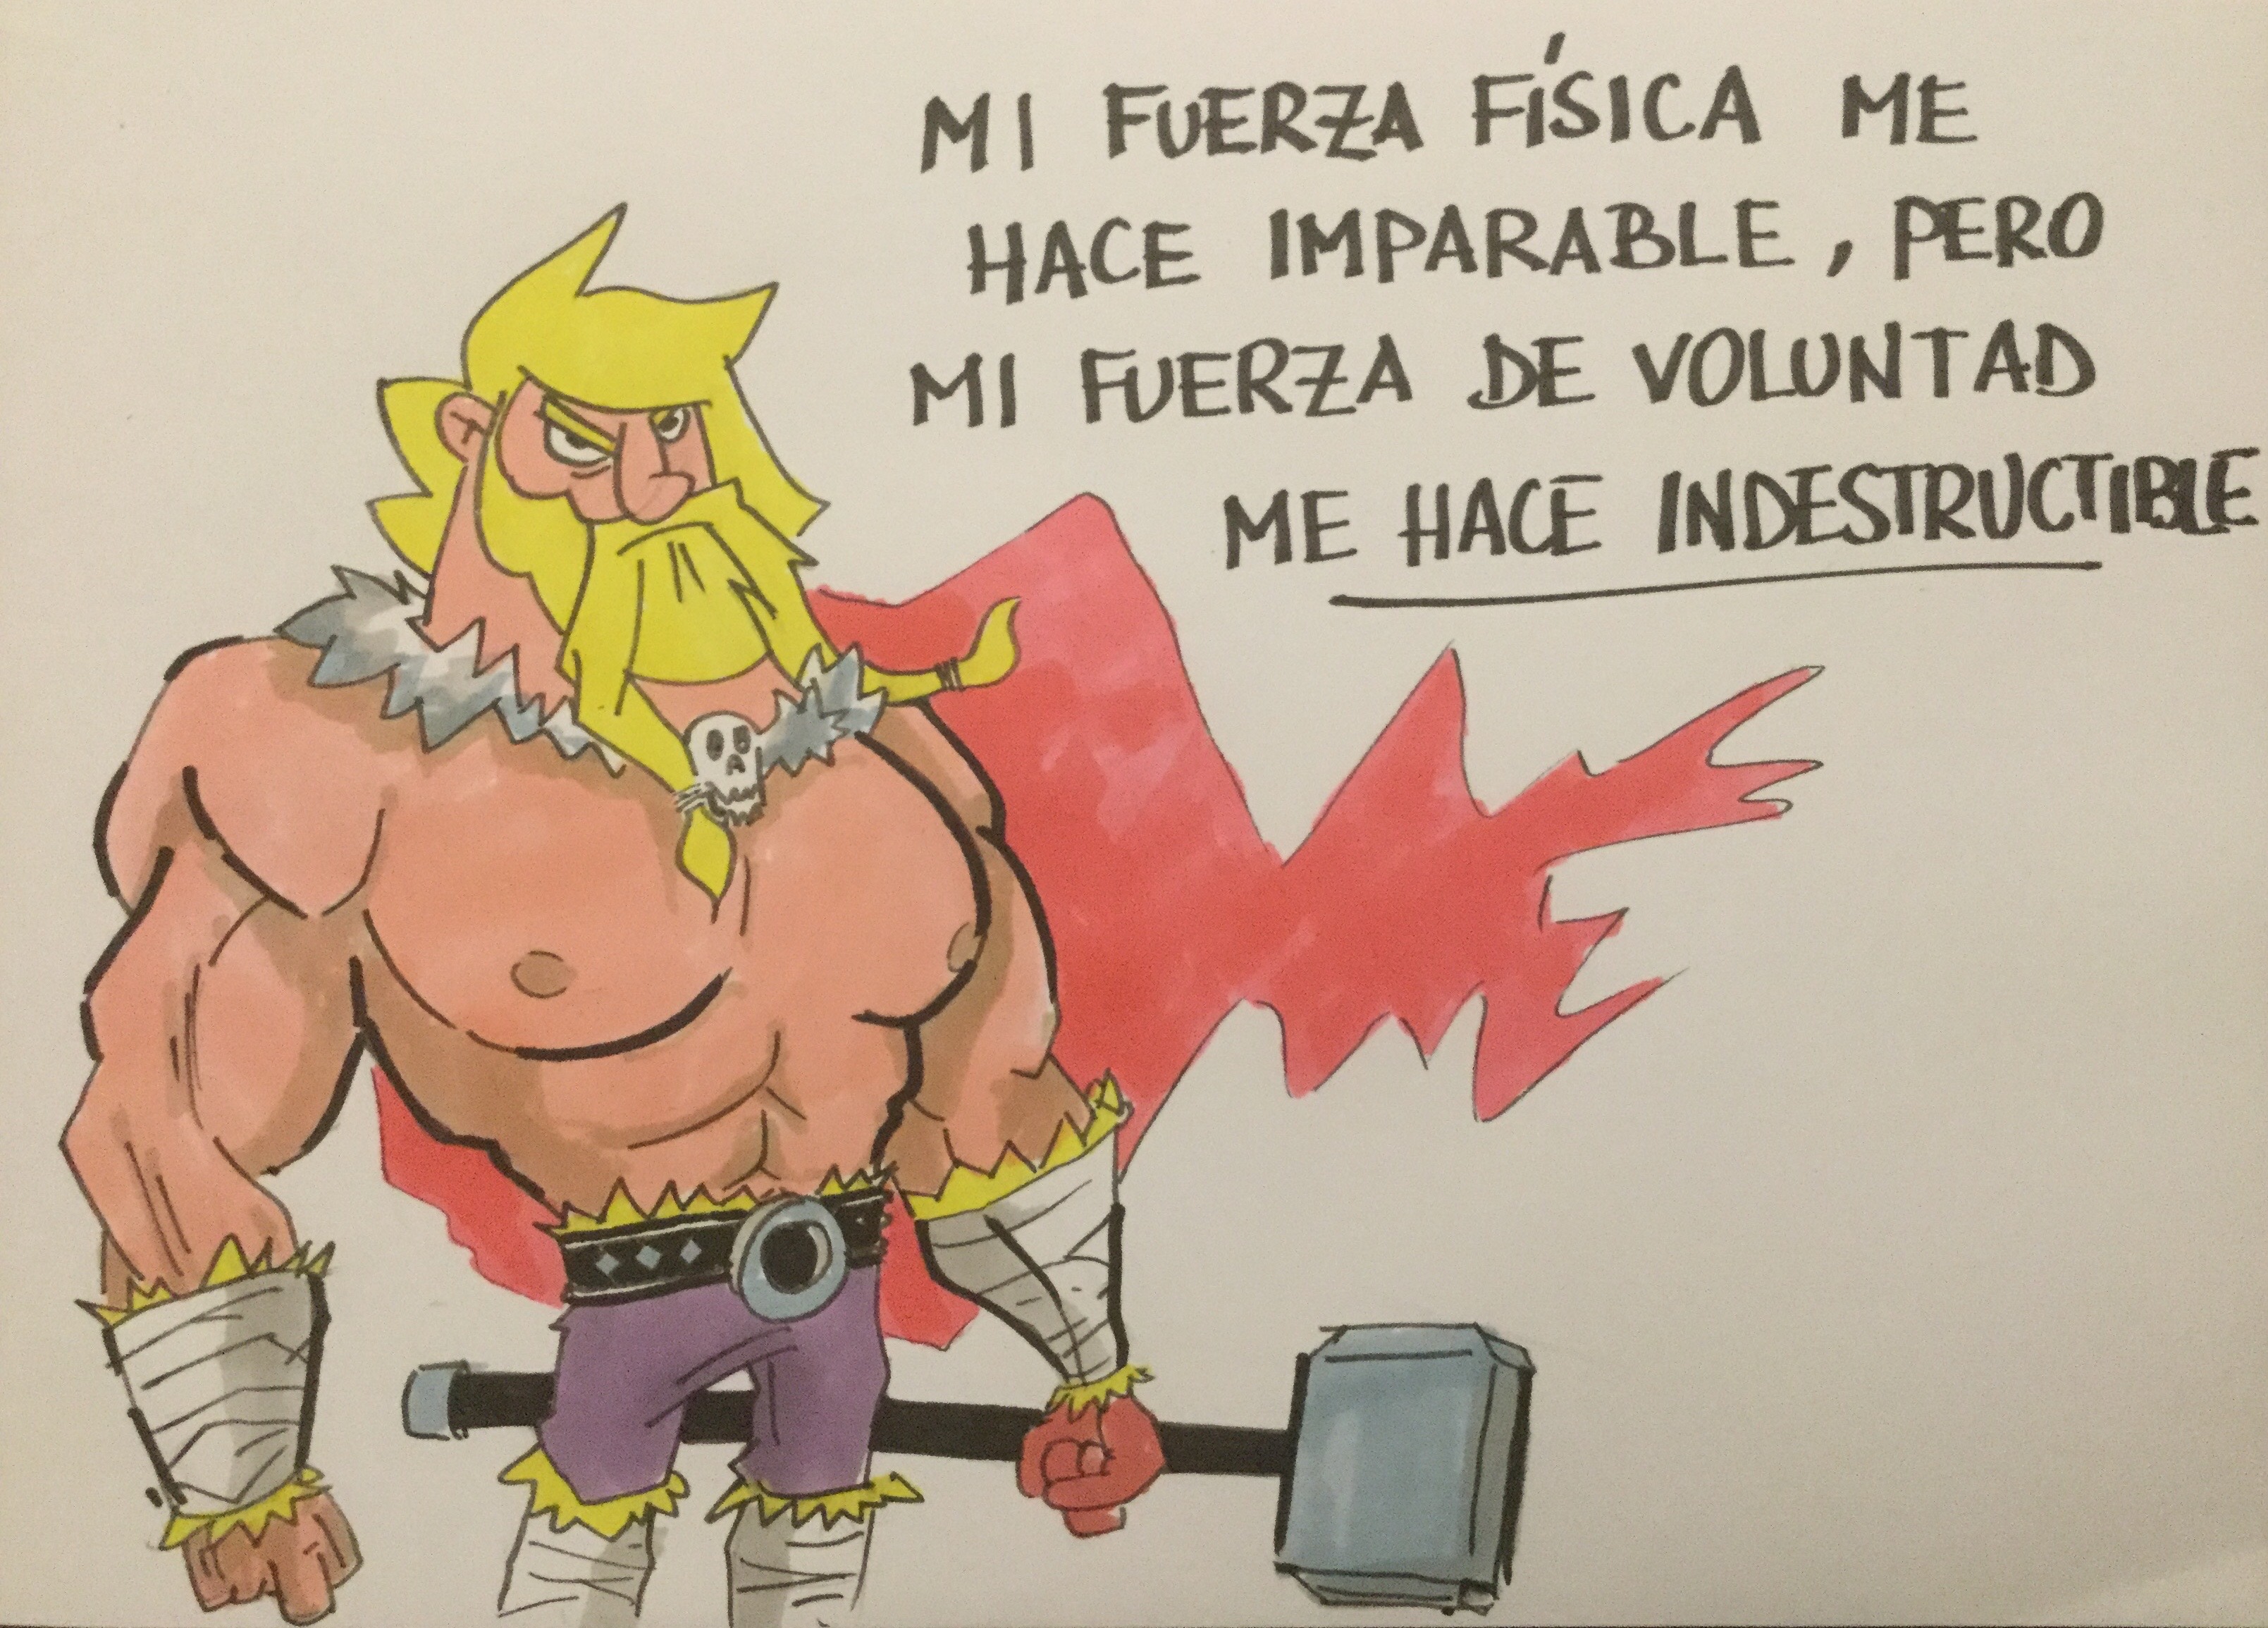 MI FUERZA FÍSICA ME
HACE IMPARABLE, PERO
MI FUERZA DE VOLUNTAD
ME HACE INDESTRUCTIBLE